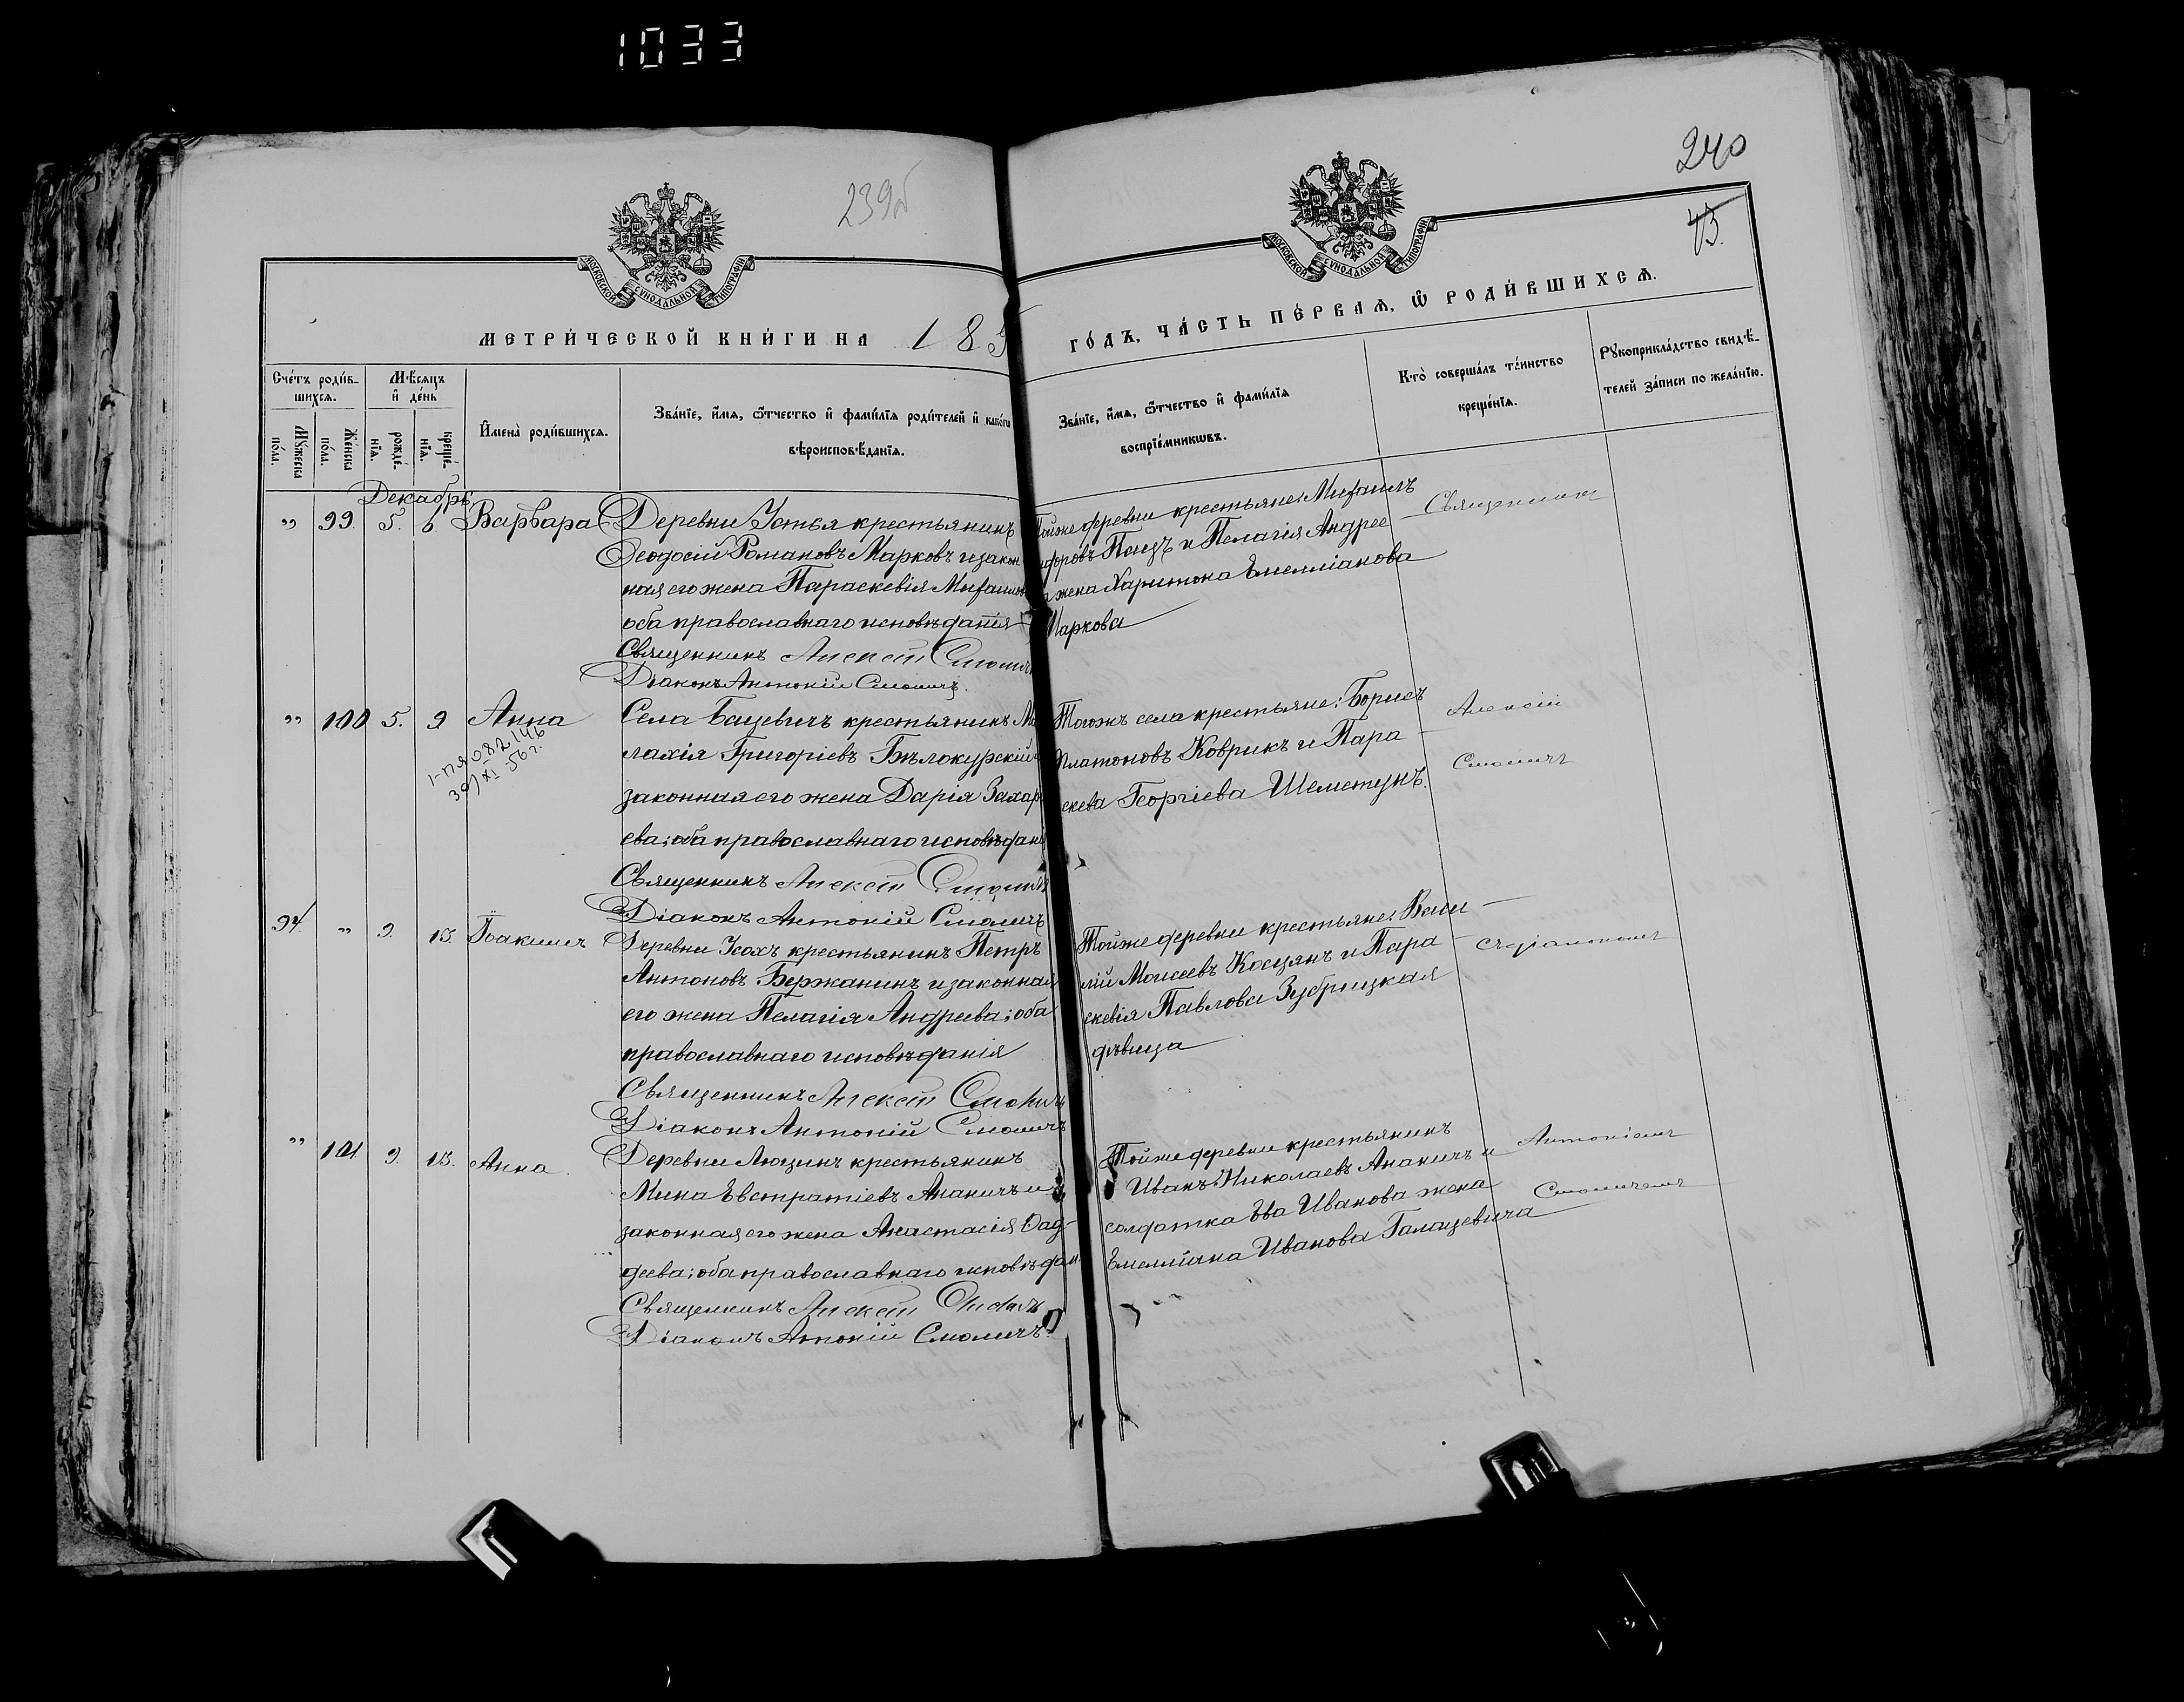 1033
239б
240
МОСКОВСКОЙ СѴНОДАЛЬНОЙ ТИПОГРАФІИ
МОСКОВСКОЙ СѴНОДАЛЬНОЙ ТИПОГРАФІИ
МЕТРИ́ЧЕСКОЙ КНИ́ГИ НА 18
ГО́ДЪ, ЧА́СТЬ ПЕ́РВАѦ, Ѿ РОДИ́ВШИХСѦ.
Сче́тъ роди́в-
шихсѧ.
Мꙋжеска
по́ла.
Же́нска
по́ла.
Мѣ́сѧцъ
и҆ де́нь
рожде́-
нїѧ.
креще́-
нїѧ.
И҆мена̀ роди́вшихсѧ.
Зва́нїе, и҆́мѧ, ѻ҆́тчество и҆ фами́лїѧ роди́телей и҆ како́гѡ
вѣроисповѣ́данїѧ.
Зва́нїе, и҆́мѧ, ѻ҆́тчество и҆ фами́лїѧ
воспрїе́мникѡвъ.
Кто̀ соверша́лъ та́инство
креще́нїѧ.
Рꙋкоприкла́дство свидѣ́-
телей за́писи по жела́нїю.
Декабрь
„ 99. 5. 6 Варвара
Деревни Устья крестьянинъ
Ѳеодосій Романовъ Марковъ и закон
ная его жена Параскевія Михаилов
оба православнаго исповѣданія
Священникъ Алексій Смоличъ
Діаконъ Антоній Смоличъ.
Тойже деревни крестьяне: Михаилъ
Пелагія Андрее
жена Харитона Емеліанова
Маркова
Священникъ
„ 100 5. 9 Анна
1-ПЯ 082146
30/XI 56 г.
Села Бацевичъ крестьянинъ Ма
лахія Григоріевъ Бѣлокурскій
законная его жена Дарія Захар
ева; оба православнаго исповѣдані
Священникъ Алексій Смоличъ
Діаконъ Антоній Смоличъ
Тогожъ села крестьяне: Борисъ
Платоновъ Коврикъ и Пара
скева Георгіева Шелестунъ.
Алексій
Смоличъ
94. „ 9. 13. Іоакимъ
Деревни Усохъ крестьянинъ Петръ
Антоновъ Бержанинъ и законная
его жена Пелагія Андреева; оба
православнаго исповѣданія
Священникъ Алексій Смоличъ
Діаконъ Антоній Смоличъ
Тойже деревни крестьяне: Васи
лій Моисеевъ Косцянъ и Пара
скевія Павлова Зубрицкая
дѣвица
съ діакономъ
„ 101 9. 13. Анна
Деревни Люцинъ крестьянинъ
Мина Евстратіевъ Ананичъ и
законная его жена Анастасія Ѳад-
деева; оба православнаго исповѣдан
Священникъ Алексій Смоличъ
Діаконъ Антоній Смоличъ
Тойже деревни крестьянинъ
Иванъ Николаевъ Ананичъ и
солдатка Ева Иванова жена
Емеліана Иванова Галацевича
Антоніемъ
Смоличемъ